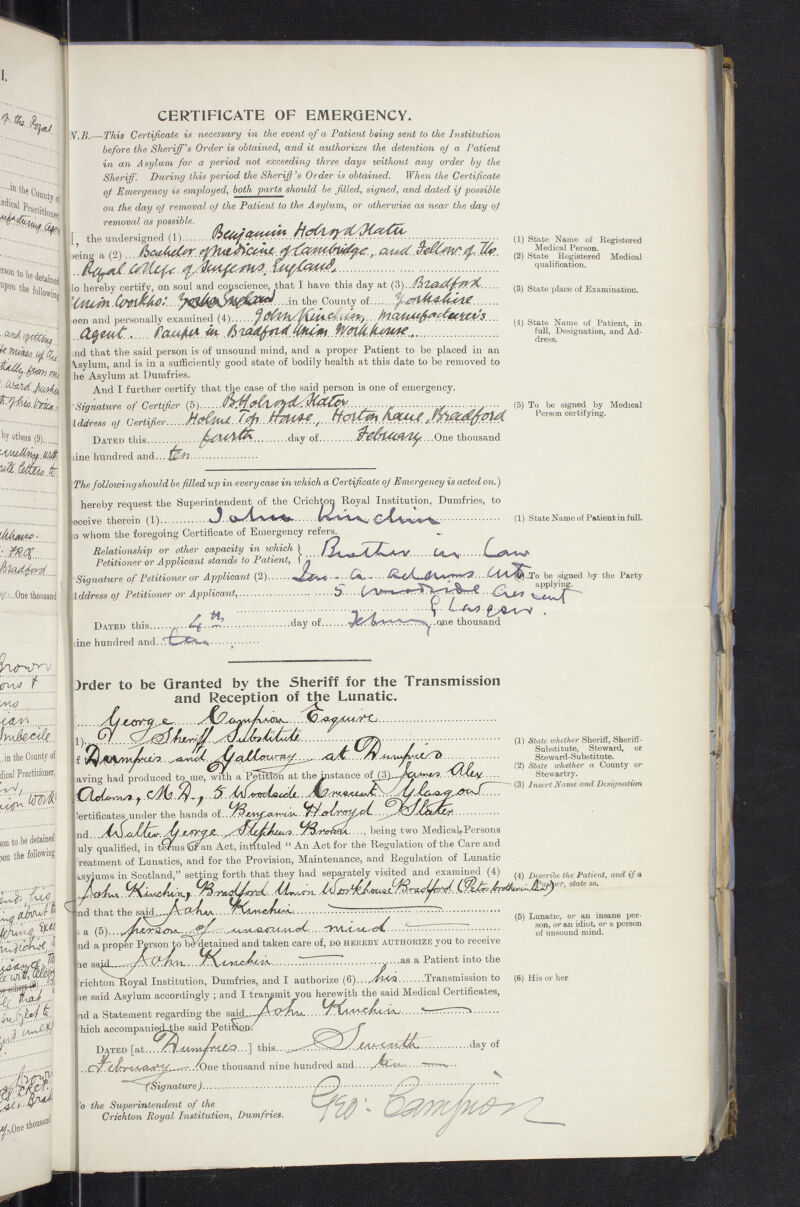 CERTIFICATE OF EMERGENCY.
N.B.—This Certificate is necessary in the event of a Patient being sent to the Institution
before the Sheriff's Order is obtained, and it authorizes the detention of a Patient
in an Asylum for a period not exceeding three days without any order by the
Sheriff. During this period the Sheriff's Order is obtained. When the Certificate
of Emergency is employed, both parts should be filled, signed, and dated if possible
on the day of removal of the Patient to the Asylum, or otherwise as near the day of
removal as possible.
I, the undersigned (1) Benjamin Holroyd Slater
being a (2) Bachelor of Medicine of Cambridge, and Fellow of the
Royal College of Surgeons, England,
do hereby certify, on soul and conscience, that I have this day at (3) Bradford
Union Workho: in the County of Yorkshire
seen and personally examined (4) John Kinchin, manufacturer's
Agent. Pauper in Bradford Union Workhouse.
and that the said person is of unsound mind, and a proper Patient to be placed in an
Asylum, and is in a sufficiently good state of bodily health at this date to be removed to
the Asylum at Dumfries.
And I further certify that the case of the said person is one of emergency.
Signature of Certifier (5) B Holroyd Slater
Address of Certifier Holme Top House, Horton Lane, Bradford
DATED this fourth day of February One thousand
nine hundred and ten
(1) State Name of Registered
Medical Person.
(2) State Registered Medical
qualification.
(3) State place of Examination.
(4) State Name of Patient, in
full, Designation, and Ad-
dress.
(5) To be signed by Medical
Person certifying.
(The following should be filled up in every case in which a Certificate of Emergency is acted on.)
hereby request the Superintendent of the Crichton Royal Institution, Dumfries, to
receive therein (1) John Kinchin
to whom the foregoing Certificate of Emergency refers.
Relationship or other capacity in which
Petitioner or Applicant stands to Patient, } Brother in Law
Signature of Petitioner or Applicant (2) Jas. A. Adams
Address of Petitioner or Applicant, 5 Woodside Crescent
Glasgow.
DATED this 4th day of February, one thousand
nine hundred and ten
(1) State Name of Patient in full.
To be signed by the Party
applying.
Order to be Granted by the Sheriff for the Transmission
and Reception of the Lunatic.
George Campion Esquire
(1) Sheriff Substitute
of Dumfries and Galloway at Dumfries
having had produced to me, with a Petition at the instance of (3) James Alex
Adams, M.D., 5 Woodside Crescent Glasgow
Certificates under the hands of Benjamin Holroyd Slater
and Walter George Stephens Brown, being two Medical Persons
duly qualified, in terms of an Act, intituled "An Act for the Regulation of the Care and
Treatment of Lunatics, and for the Provision, Maintenance, and Regulation of Lunatic
Asylums in Scotland," setting forth that they had separately visited and examined (4)
John Kinchin, Bradford Union Workhouse Bradford
and that the said John Kinchin
is a (5) person of unsound mind
and a proper Person to be detained and taken care of, DO HEREBY AUTHORIZE you to receive
the said John Kinchin as a Patient into the
Crichton Royal Institution, Dumfries, and I authorize (6) his Transmission to
the said Asylum accordingly; and I transmit you herewith the said Medical Certificates,
and a Statement regarding the said John Kinchin
which accompanied the said Petition.
DATED [at Dumfries ] this Seventh day of
February One thousand nine hundred and ten
(Signature)
Geo: Campion
To the Superintendent of the
Crichton Royal Institution, Dumfries.
(1) State whether Sheriff, Sheriff-
Substitute, Steward, or
Steward-Substitute.
(2) State whether a County or
Stewartry.
(3) Insert Name and Designation
(4) Describe the Patient, and if a
Pauper, state so.
(5) Lunatic, or an insane per-
son, or an idiot, or a person
of unsound mind.
(6) His or her